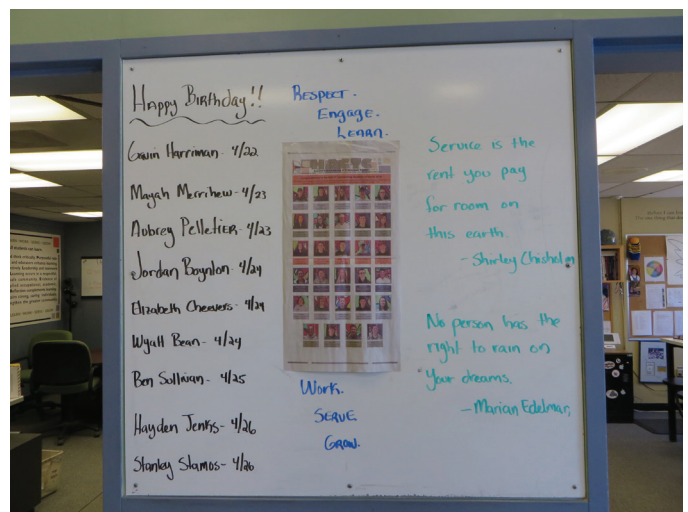 Happy Birthday!!
Gavin Harriman - 4/22
Mayah Merrihew - 4/23
Aubrey Pelletier - 4/23
Jordan Boynton - 4/24
Elizabeth Cheevers - 4/24
Wyatt Bean - 4/24
Ben Sullivan - 4/25
Hayden Jenks - 4/26
Stanley Stamos - 4/26
Respect.
Engage.
Learn.
Work.
Serve.
Grow.
Service is the
rent you pay
for room on
this earth.
- Shirley Chisholm
No person has the
right to rain on
your dreams.
- Marian Edelman